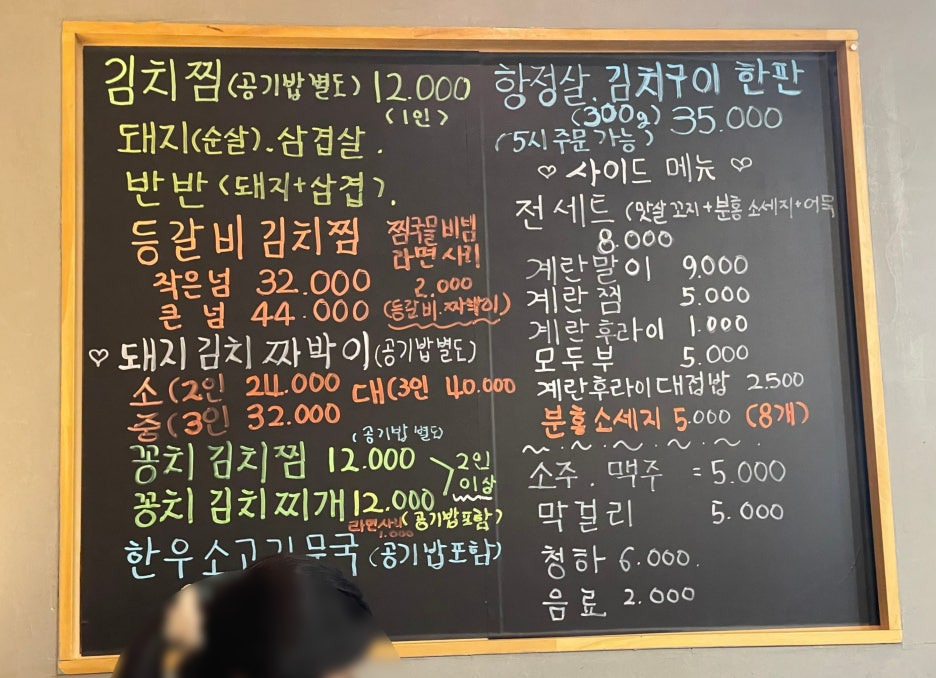 김치찜 (공기밥 별도) 12.000
(1인)
돼지(순살).삼겹살.
반반 (돼지+삼겹).
등갈비 김치찜
작은넘 32.000
큰넘 44.000
찜국물 비빔
라면 사리
2.000
(등갈비.짜박이)
♡ 돼지김치 짜박이 (공기밥별도)
소(2인 24.000 대(3인 40.000
중(3인 32.000
(공기밥 별도)
꽁치 김치찜 12.000
꽁치 김치찌개 12.000
2인
이상
라면사리 (공기밥포함)
1.000
한우소고기 무국 (공기밥포함)
항정살.김치구이 한판
(300g) 35.000
(5시 주문 가능)
♡ 사이드 메뉴 ♡
전세트 (맛살꼬지+분홍소세지+어묵
8.000
계란말이 9.000
계란찜 5.000
계란후라이 1.000
모두부 5.000
계란후라이대접밥 2.500
분홍소세지 5.000 (8개)
~.~.~.~.~.~.
소주.맥주 =5.000
막걸리 5.000
청하 6.000.
음료 2.000